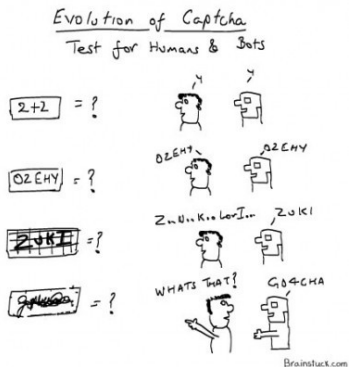 Evolution of Captcha
Test for Humans & Bots
2+2 = ?
4 4
OZEHY = ?
OZEHY OZEHY
ZUKI = ?
ZuNuKooLorI.. ZUKI
= ?
WHATS THAT? GO4CHA
Brainstuck.com